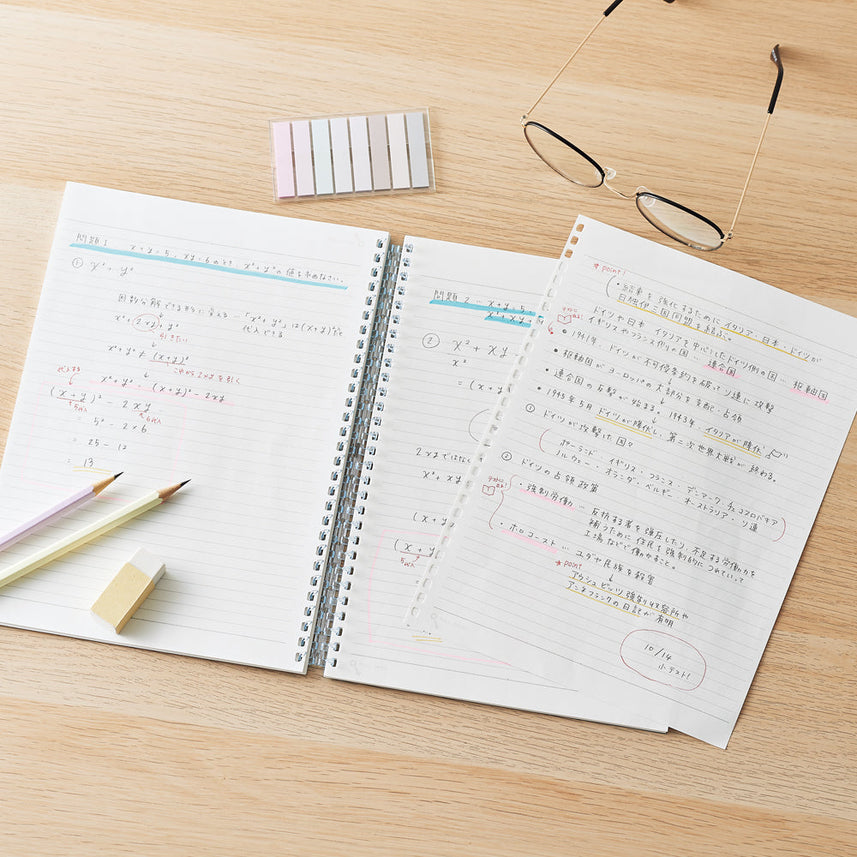 問題1 x+y=5, xy=6のとき x²+y²の値を求めなさい。
① x²+y²
因数分解できる形に変える…「x²+y²」は(x+y)²を
代入できる
x²+2xy+y²
引きたい
x²+y² ≠ (x+y)²
これから2xyを引く
代入する
x²+y² = (x+y)² - 2xy
(x+y)² - 2xy
5代入
6代入
= 5² - 2×6
= 25 - 12
= 13
問題2 … x+y=5,
②
x²+xy
x²
= (x+y
2xyではなく
x²+xy
(x+y
(x+y
5代入
*point!
・結束を強化するために イタリア・日本・ドイツが
日独伊三国同盟を結ぶ。
ドイツや日本 イタリアを中心としたドイツ側の国 … 枢軸国
イギリスやフランス側の国 … 連合国
・1941年、ドイツが不可侵条約を破ってソ連に攻撃
・枢軸国がヨーロッパの大部分を支配・占領
・連合国の反撃が始まる。1943年、イタリアが降伏
・1945年5月 ドイツが降伏し、第二次世界大戦が終わる。
① ドイツが攻撃した国。
ポーランド イギリス・フランス・デンマーク・チェコスロバキア
ノルウェー・オランダ・ベルギー・オーストラリア・ソ連
② ドイツの占領政策
・強制労働 … 反抗する者を弾圧したり、不足する労働力を
補うために住民を強制的につれていって
工場などで働かすこと。
・ホロコースト … ユダヤ民族を殺害
*point
アウシュビッツ強制収容所や
アンネフランクの日記が有明
10/14
小テスト!